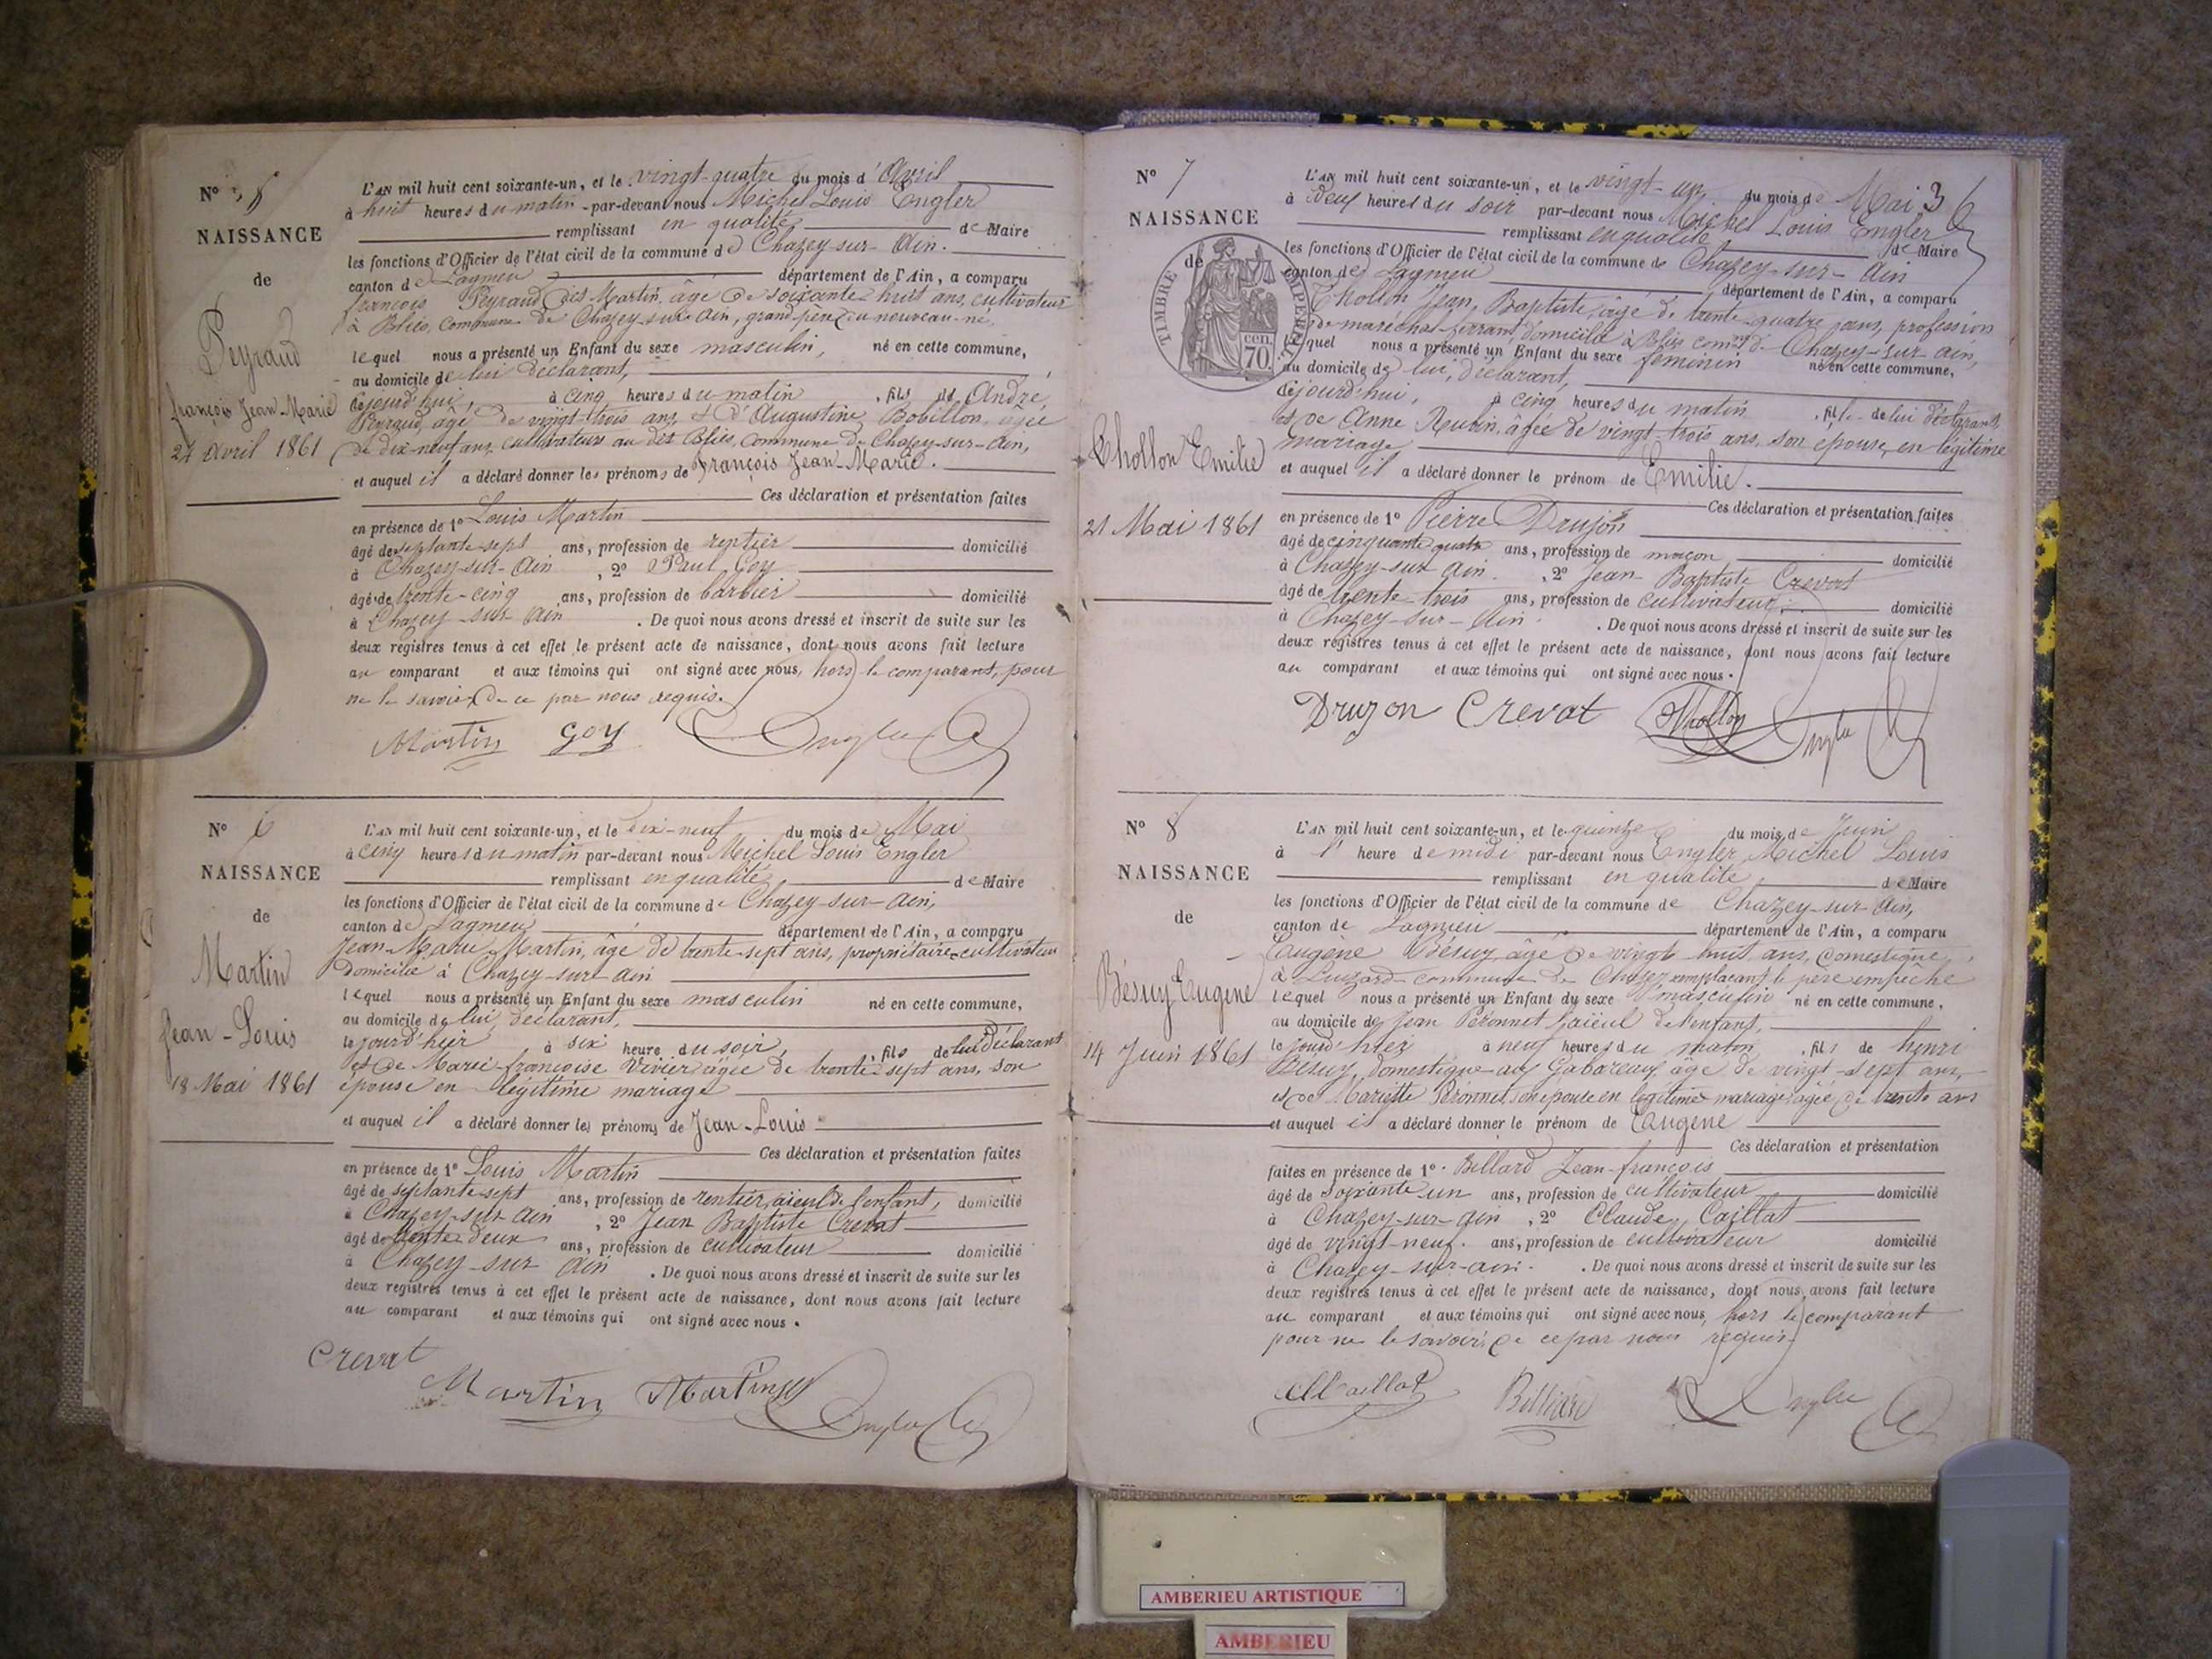 N° 5
NAISSANCE
de
Peyraud
françois Jean-Marie
24 Avril 1861
L'AN mil huit cent soixante-un, et le vingt-quatre du mois d'Avril
à huit heures du matin par-devant nous Michel Louis Engler
remplissant en qualité de Maire
les fonctions d'Officier de l'état civil de la commune de Chazey-sur-Ain.
canton de Lagnieu département de l'Ain, a comparu
françois Peyraud dit Martin, âgé de soixante-huit ans, cultivateur
à Blies, commune de Chazey-sur-Ain, grand-père du nouveau-né,
lequel nous a présenté un Enfant du sexe masculin, né en cette commune,
au domicile de lui déclarant,
cejourd'hui, à cinq heures du matin, fils de André
Peyraud, âgé de vingt-trois ans, et d'Augustine Bobillon, âgée
de dix-neuf ans, cultivateurs au dit Blies, commune de Chazey-sur-Ain,
et auquel il a déclaré donner les prénoms de françois Jean-Marie.
Ces déclaration et présentation faites
en présence de 1° Louis Martin
âgé de septante-sept ans, profession de rentier domicilié
à Chazey-sur-Ain, 2° Paul Goy
âgé de trente-cinq ans, profession de barbier domicilié
à Chazey-sur-Ain. De quoi nous avons dressé et inscrit de suite sur les
deux registres tenus à cet effet le présent acte de naissance, dont nous avons fait lecture
au comparant et aux témoins qui ont signé avec nous, hors le comparant, pour
ne le savoir, de ce par nous requis.
Martin Goy Engler
N° 6
NAISSANCE
de
Martin
Jean-Louis
18 Mai 1861
L'AN mil huit cent soixante-un, et le dix-neuf du mois de Mai
à cinq heures du matin par-devant nous Michel Louis Engler
remplissant en qualité, de Maire
les fonctions d'Officier de l'état civil de la commune de Chazey-sur-Ain,
canton de Lagnieu département de l'Ain, a comparu
Jean-Marie Martin, âgé de trente-sept ans, propriétaire-cultivateur
domicilié à Chazey-sur-Ain
lequel nous a présenté un Enfant du sexe masculin né en cette commune,
au domicile de lui, déclarant,
le jourd'hier à six heure du soir, fils de lui déclarant
et de Marie-françoise Vivier âgée de trente-sept ans, son
épouse en légitime mariage
et auquel il a déclaré donner les prénoms de Jean-Louis
Ces déclaration et présentation faites
en présence de 1° Louis Martin
âgé de septante-sept ans, profession de rentier, aïeul de l'enfant, domicilié
à Chazey-sur-Ain, 2° Jean Baptiste Crevat
âgé de trente-deux ans, profession de cultivateur domicilié
à Chazey-sur-Ain. De quoi nous avons dressé et inscrit de suite sur les
deux registres tenus à cet effet le présent acte de naissance, dont nous avons fait lecture
au comparant et aux témoins qui ont signé avec nous.
Crevat
Martin Martin Engler
36
N° 7
NAISSANCE
de
TIMBRE IMPÉRIAL
70 cen.
Chollon Emilie
21 Mai 1861
L'AN mil huit cent soixante-un, et le vingt-un du mois de Mai
à deux heures du soir par-devant nous Michel Louis Engler
remplissant en qualité de Maire
les fonctions d'Officier de l'état civil de la commune de Chazey-sur-Ain
canton de Lagnieu département de l'Ain, a comparu
Chollon Jean, Baptiste, âgé de trente-quatre ans, profession
de maréchal-ferrant, domicilié à Blies comne de Chazey-sur-Ain,
lequel nous a présenté un Enfant du sexe féminin né en cette commune,
au domicile de lui, déclarant,
cejourd'hui, à cinq heures du matin, fille de lui déclarant,
et de Anne Rubin, âgée de vingt-trois ans, son épouse, en légitime
mariage
et auquel il a déclaré donner le prénom de Emilie.
Ces déclaration et présentation faites
en présence de 1° Pierre Drujon
âgé de cinquante quatre ans, profession de maçon domicilié
à Chazey-sur-Ain, 2° Jean-Baptiste Crevat
âgé de trente-trois ans, profession de cultivateur, domicilié
à Chazey-sur-Ain. De quoi nous avons dressé et inscrit de suite sur les
deux registres tenus à cet effet le présent acte de naissance, dont nous avons fait lecture
au comparant et aux témoins qui ont signé avec nous.
Drujon Crevat Chollon Engler
N° 8
NAISSANCE
de
Bésuy Eugène
14 Juin 1861
L'AN mil huit cent soixante-un, et le quinze du mois de Juin
à l' heure de midi par-devant nous Engler Michel Louis
remplissant en qualité de Maire
les fonctions d'Officier de l'état civil de la commune de Chazey-sur-Ain,
canton de Lagnieu département de l'Ain, a comparu
Eugène Bésuy âgé de vingt-huit ans, domestique,
à Luizard commune de Chazey remplaçant le père empêché
lequel nous a présenté un Enfant du sexe masculin né en cette commune,
au domicile de Jean Péronnet l'aïeul de l'enfant,
le jourd'hier à neuf heures du matin, fils de henri
Bésuy, domestique aux Gabareaux, âgé de vingt-sept ans,
et de Mariette Péronnet, son épouse en légitime mariage, âgée de trente ans
et auquel il a déclaré donner le prénom de Eugène
Ces déclaration et présentation
faites en présence de 1° Billard Jean-françois
âgé de soixante un ans, profession de cultivateur domicilié
à Chazey-sur-Ain, 2° Claude Caillat
âgé de vingt-neuf. ans, profession de cultivateur domicilié
à Chazey-sur-ain. De quoi nous avons dressé et inscrit de suite sur les
deux registres tenus à cet effet le présent acte de naissance, dont nous avons fait lecture
au comparant et aux témoins qui ont signé avec nous, hors le comparant
pour ne le savoir, de ce par nous requis.
Caillat Billiard Engler
AMBERIEU ARTISTIQUE
AMBERIEU